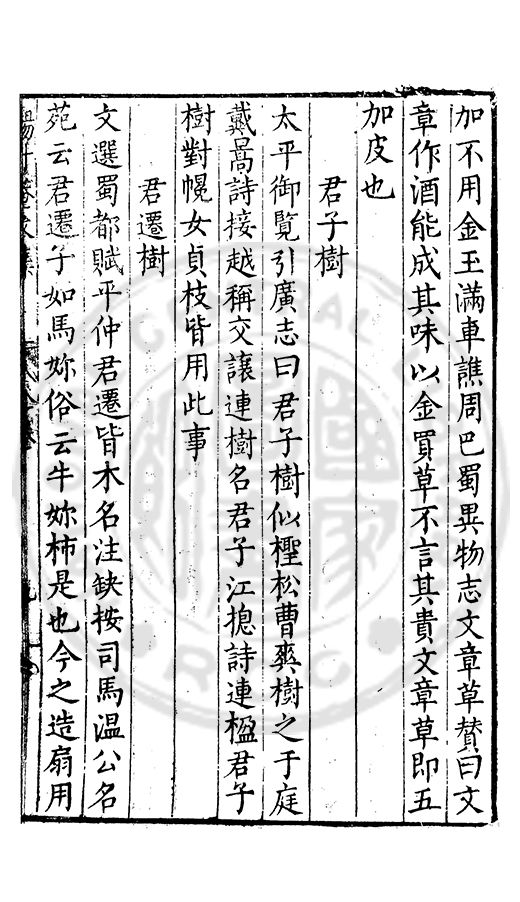 加不用金玉滿車譙周巴蜀異物志文章草賛曰文
章作酒能成其味以金買草不言其貴文章草即五
加皮也
君子樹
太平御覽引廣志曰君子樹似檉松曹爽樹之于庭
戴暠詩接越稱交讓連樹名君子江揔詩連楹君子
樹對幌女貞枝皆用此事
君遷樹
文選蜀都賦平仲君遷皆木名注缺按司馬温公名
苑云君遷子如馬妳俗云牛妳柿是也今之造扇用